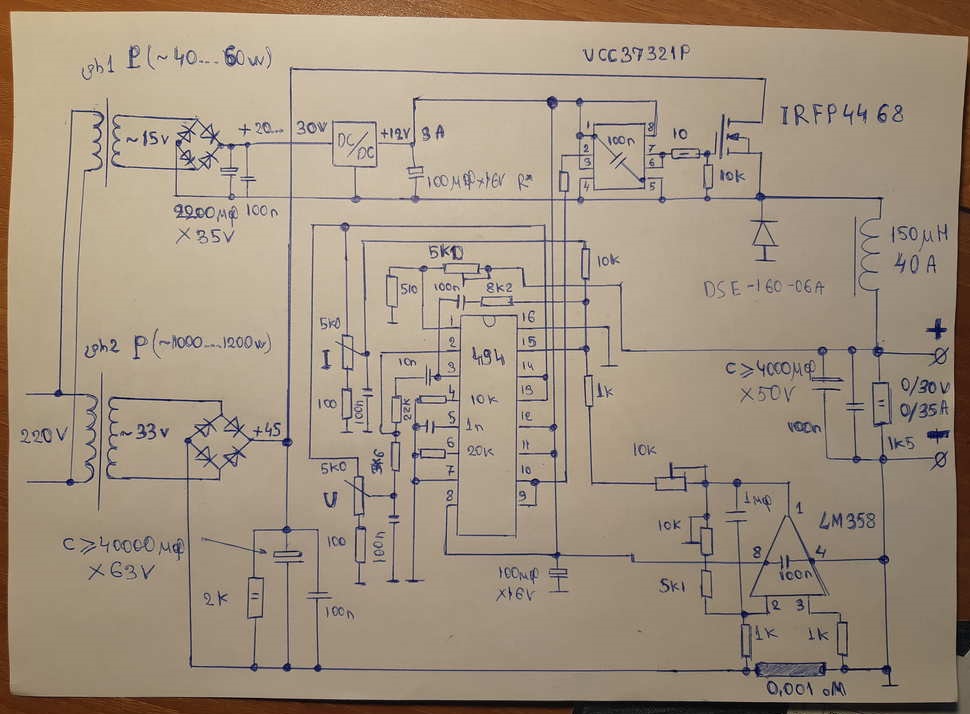 P (~40...60w)
VCC37321P
IRFP4468
~15v
+20...
30V
DC/DC
+12V
3A
100мф×16V
R*
1
2
3
4
100n
8
7
6
5
10
10k
2200мф
×35V
100n
150μH
40A
DSE-160-06A
5k0
510
100n
8k2
10k
5k0
I
100
100n
10n
22k
3k6
1
2
3
4
5
6
7
8
494
10k
1n
20k
16
15
14
13
12
11
10
9
1k
P (~1000....1200w)
220V
~33v
+45
5k0
U
100
100n
C ≥ 4000мф
×50V
100n
+
0/30V
0/35A
1k5
−
10k
10k
5k1
1мф
1
LM358
8
4
100n
2
3
1k
1k
0,001 oм
C ≥ 40000мф
×63V
2k
100n
100мф
×16V